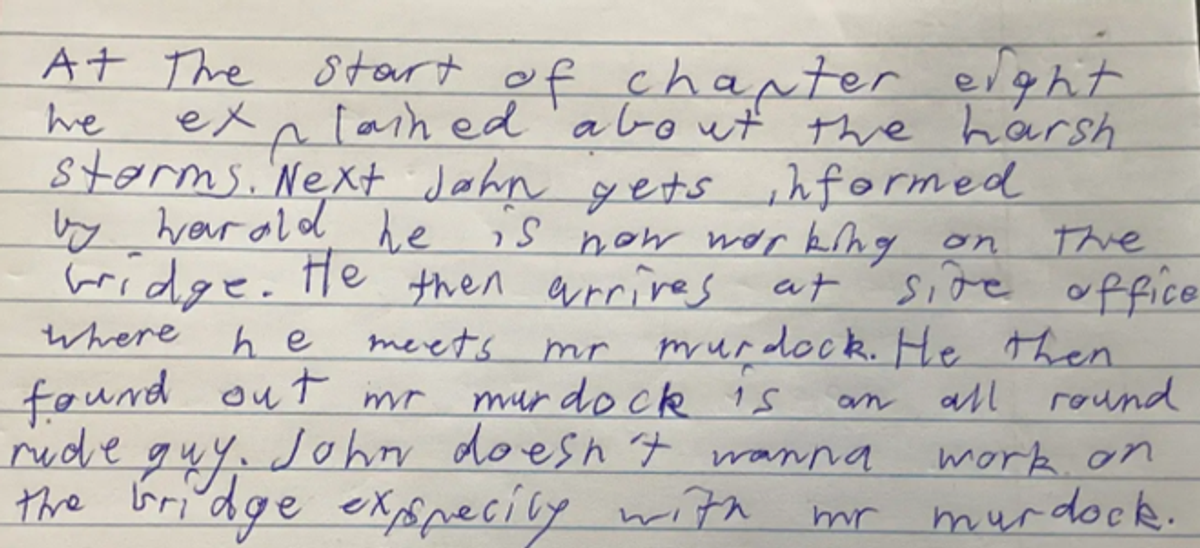 At The start of chapter eight
he explained about the harsh
storms. Next John gets informed
by harold he is now working on the
bridge. He then arrives at site office
where he meets mr murdock. He then
found out mr murdock is an all round
rude guy. John doesn't wanna work on
the bridge exspecily with mr murdock.